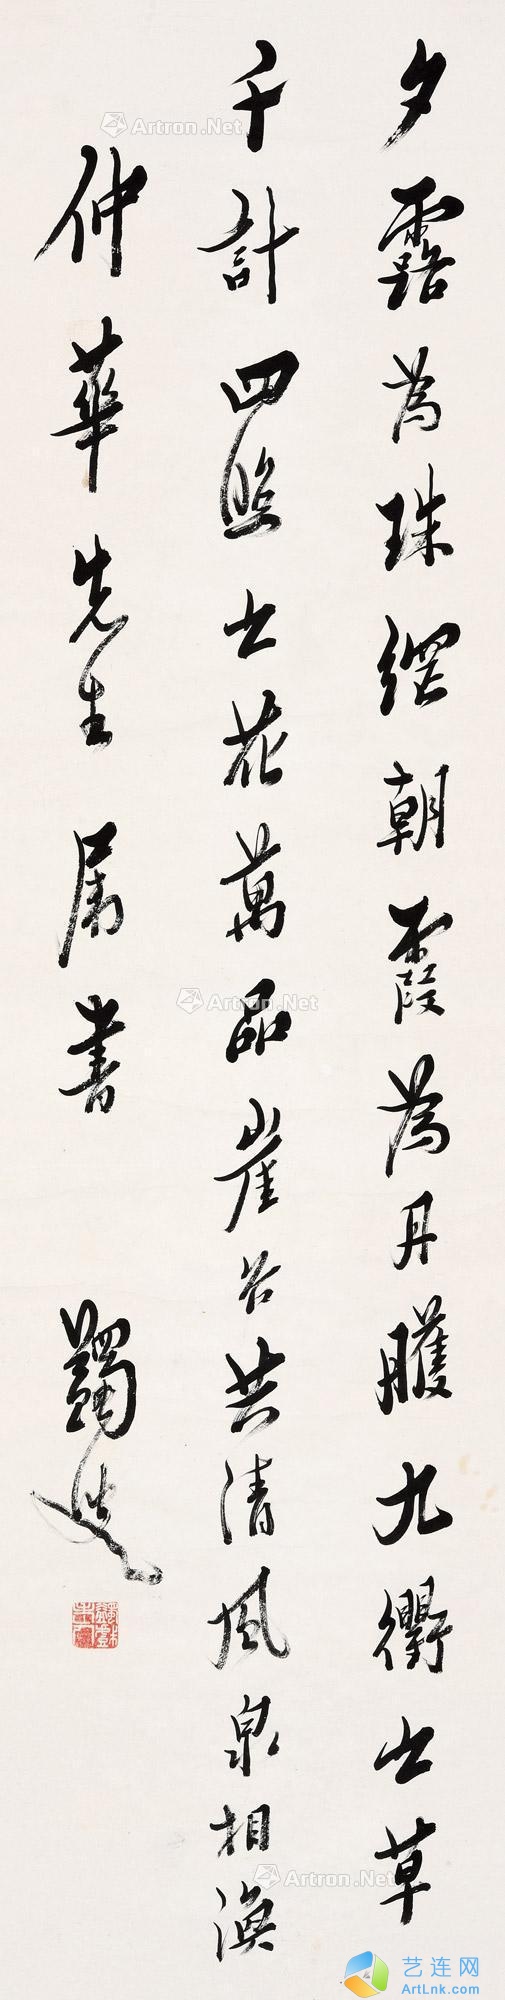 夕露為珠網朝霞為丹臒九衢之草
千計四照之花萬品崖谷共清風泉相渙
仲華先生屬書 蠲叟
Artron.Net
Artron.Net
Artron.Net
Artron.Net
艺连网
ArtLnk.com